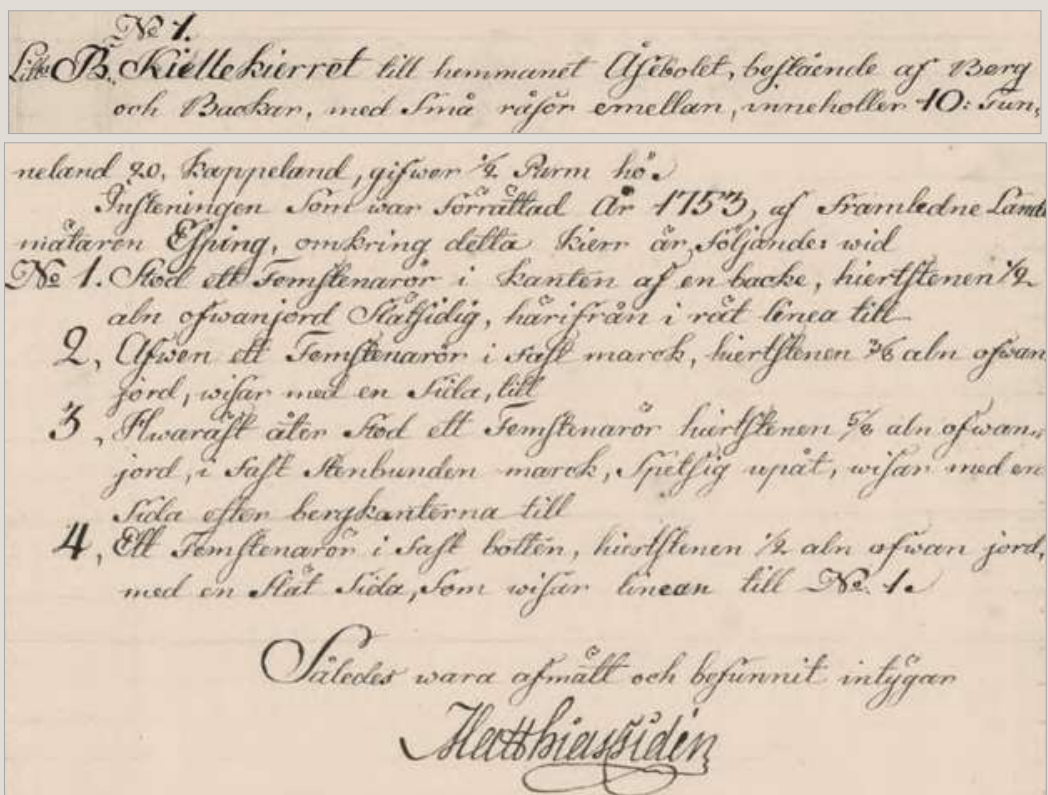 No 1.
Litt: B. Kiellekierret till hemmanet Åsebolet, bestående af Berg
och Backar, med små råsör emellan, inneholler 10: Tun,
neland 20, kappeland, gifwer 1/2 Parm hö.
Insteningen som war förrättad År 1753, af framledne Landt
mätaren Esping, omkring detta kierr är följande: wid
No 1. Stod ett Femstenarör i kanten af en backe, hiertstenen 1/2
aln ofwanjord Slätsidig, härifrån i rät linea till
2, Äfwen ett Femstenarör i fast marck, hiertstenen 3/8 aln ofwan
jord, wisar med en Sida, till
3, Hwaräst åter stod ett Femstenarör hiertstenen 5/8 aln ofwan,,
jord, i fast Stenbunden marck, Spetsig upåt, wisar med en
Sida efter bergkanterna till
4, Ett Femstenarör i fast botten, hiertstenen 1/2 aln ofwan jord,
med en Slät Sida, som wisar linean till No. 1.
Således wara afmätt och befunnit intÿgar
Matthias Sidén